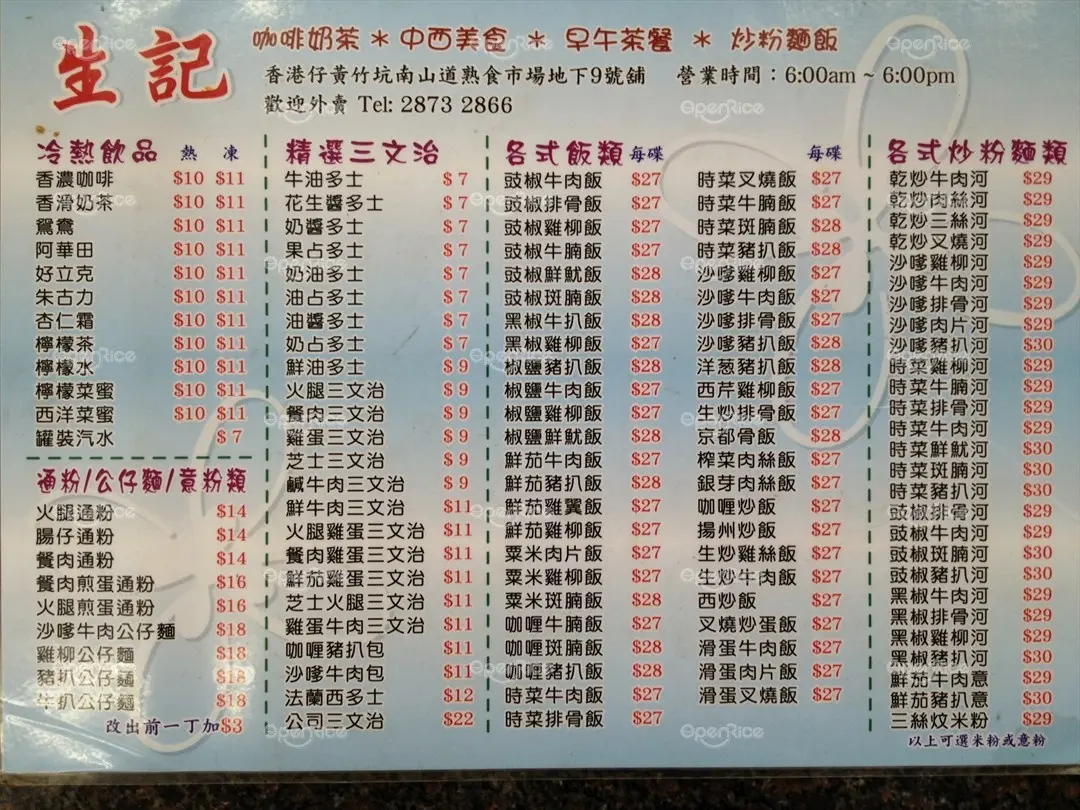 生記
咖啡奶茶 * 中西美食 * 早午茶餐 * 炒粉麵飯
香港仔黃竹坑南山道熟食市場地下9號舖 營業時間：6:00am ~ 6:00pm
歡迎外賣 Tel: 2873 2866
冷熱飲品 熱 凍
香濃咖啡 $10 $11
香滑奶茶 $10 $11
鴛鴦 $10 $11
阿華田 $10 $11
好立克 $10 $11
朱古力 $10 $11
杏仁霜 $10 $11
檸檬茶 $10 $11
檸檬水 $10 $11
檸檬菜蜜 $10 $11
西洋菜蜜 $10 $11
罐裝汽水 $7
通粉/公仔麵/意粉類
火腿通粉 $14
腸仔通粉 $14
餐肉通粉 $14
餐肉煎蛋通粉 $16
火腿煎蛋通粉 $16
沙嗲牛肉公仔麵 $18
雞柳公仔麵 $18
豬扒公仔麵 $18
牛扒公仔麵 $18
改出前一丁加$3
精選三文治
牛油多士 $7
花生醬多士 $7
奶醬多士 $7
果占多士 $7
奶油多士 $7
油占多士 $7
油醬多士 $7
奶占多士 $7
鮮油多士 $9
火腿三文治 $9
餐肉三文治 $9
雞蛋三文治 $9
芝士三文治 $9
鹹牛肉三文治 $9
鮮牛肉三文治 $11
火腿雞蛋三文治 $11
餐肉雞蛋三文治 $11
鮮茄雞蛋三文治 $11
芝士火腿三文治 $11
雞蛋牛肉三文治 $11
咖喱豬扒包 $11
沙嗲牛肉包 $11
法蘭西多士 $12
公司三文治 $22
各式飯類 每碟
豉椒牛肉飯 $27
豉椒排骨飯 $27
豉椒雞柳飯 $27
豉椒牛腩飯 $27
豉椒鮮魷飯 $28
豉椒斑腩飯 $28
黑椒牛扒飯 $28
黑椒雞柳飯 $27
椒鹽豬扒飯 $28
椒鹽牛肉飯 $27
椒鹽雞柳飯 $27
椒鹽鮮魷飯 $28
鮮茄牛肉飯 $27
鮮茄豬扒飯 $28
鮮茄雞翼飯 $27
鮮茄雞柳飯 $27
粟米肉片飯 $27
粟米雞柳飯 $27
粟米斑腩飯 $28
咖喱牛腩飯 $27
咖喱斑腩飯 $28
咖喱豬扒飯 $28
時菜牛肉飯 $27
時菜排骨飯 $27
每碟
時菜叉燒飯 $27
時菜牛腩飯 $27
時菜斑腩飯 $28
時菜豬扒飯 $28
沙嗲雞柳飯 $27
沙嗲牛肉飯 $27
沙嗲排骨飯 $27
沙嗲豬扒飯 $28
洋葱豬扒飯 $28
西芹雞柳飯 $27
生炒排骨飯 $27
京都骨飯 $28
榨菜肉絲飯 $27
銀芽肉絲飯 $27
咖喱炒飯 $27
揚州炒飯 $27
生炒雞絲飯 $27
生炒牛肉飯 $27
西炒飯 $27
叉燒炒蛋飯 $27
滑蛋牛肉飯 $27
滑蛋肉片飯 $27
滑蛋叉燒飯 $27
各式炒粉麵類
乾炒牛肉河 $29
乾炒肉絲河 $29
乾炒三絲河 $29
乾炒叉燒河 $29
沙嗲雞柳河 $29
沙嗲牛肉河 $29
沙嗲排骨河 $29
沙嗲肉片河 $29
沙嗲豬扒河 $30
時菜雞柳河 $29
時菜牛腩河 $29
時菜排骨河 $29
時菜牛肉河 $29
時菜鮮魷河 $30
時菜斑腩河 $30
時菜豬扒河 $30
豉椒排骨河 $29
豉椒牛肉河 $29
豉椒斑腩河 $30
豉椒豬扒河 $30
黑椒牛肉河 $29
黑椒排骨河 $29
黑椒雞柳河 $29
黑椒豬扒河 $30
鮮茄牛肉意 $29
鮮茄豬扒意 $30
三絲炆米粉 $29
以上可選米粉或意粉
OpenRice